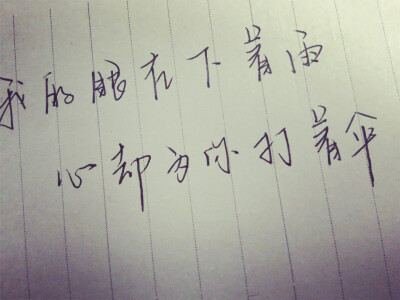 我的眼在下着雨
心却为你打着伞